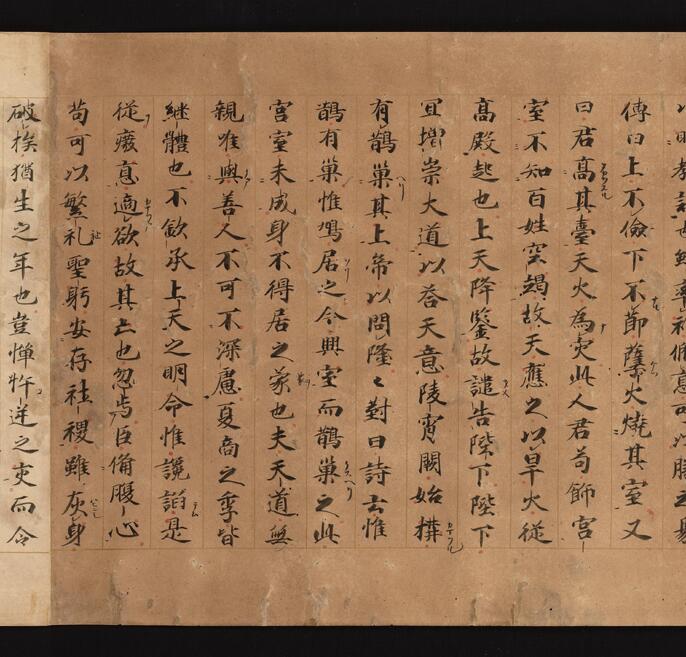 傳曰上不儉下不節孽火燒其室又
曰君高其臺天火為灾此人君苟飾宮
室不知百姓空竭故天應之以旱火從
高殿起也上天降鑒故譴告陛下陛下
宜增崇大道以荅天意陵霄闕始構
有鵲巢其上帝以問隆〻對曰詩云惟
鵲有巢惟鳩居之今興室而鵲巢之此
宮室未成身不得居之象也夫天道無
親唯與善人不可不深慮夏商之季皆
継體也不欽承上天之明命惟讒諂是
從廢悳適欲故其亡也忽焉臣備腹心
苟可以繁礼聖躬安存社稷雖灰身
破族猶生之年也豈憚忤逆之灾而令